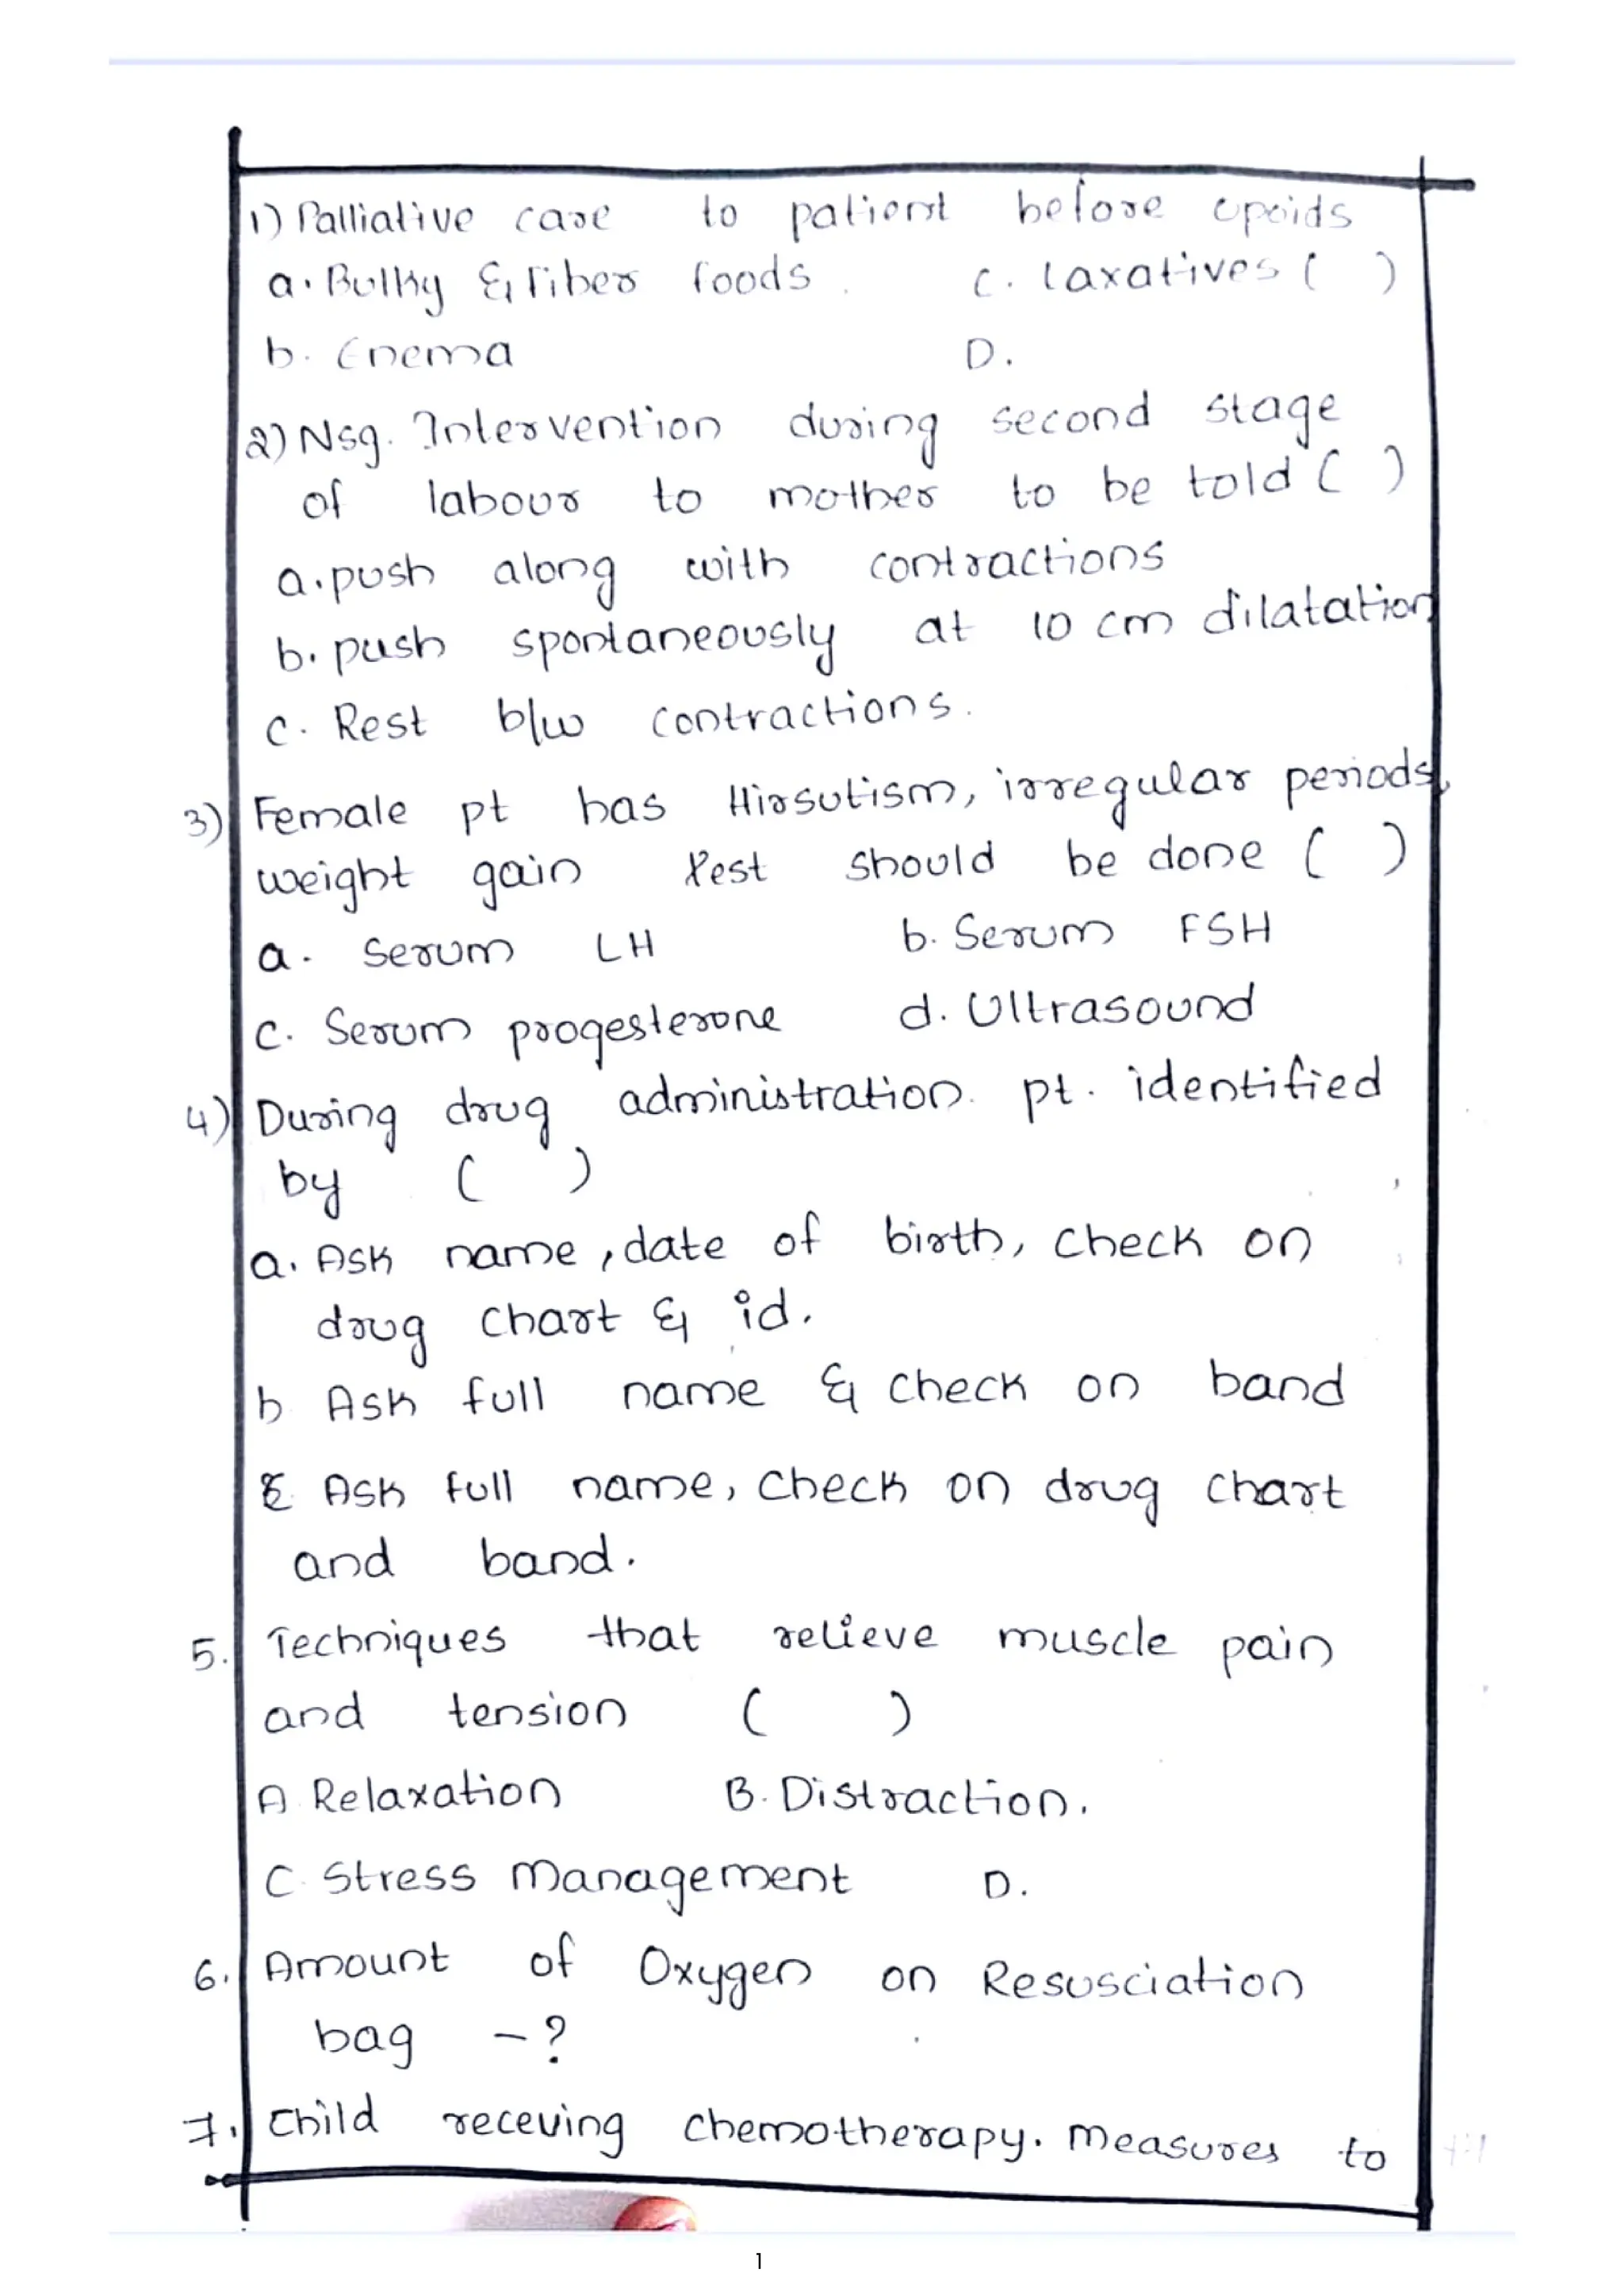 1) Palliative care to patient before opoids
a. Bulky & fiber foods. c. laxatives ( )
b. Enema D.
2) Nsg. Intervention during second stage
of labour to mother to be told ( )
a. push along with contractions
b. push spontaneously at 10 cm dilatation
c. Rest b/w contractions.
3) Female pt has Hirsutism, irregular periods,
weight gain test should be done ( )
a. Serum LH b. Serum FSH
c. Serum progesterone d. Ultrasound
4) During drug administration. pt. identified
by ( )
a. Ask name, date of birth, check on
drug chart & id.
b Ask full name & check on band
c Ask full name, check on drug chart
and band.
5. Techniques that relieve muscle pain
and tension ( )
A Relaxation B. Distraction.
C. Stress Management D.
6. Amount of Oxygen on Resusciation
bag - ?
7. Child receving chemotherapy. Measures to
1